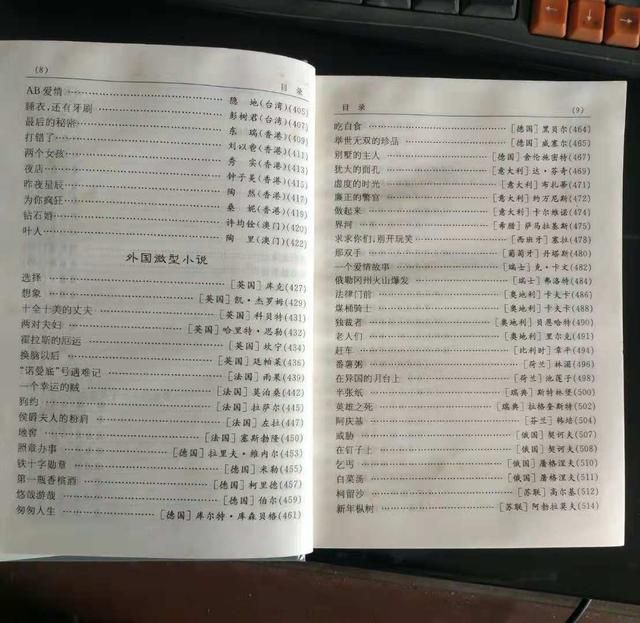 (8)
目 录
AB爱情 隐 地(台湾)(405)
睡衣,还有牙刷 彭树君(台湾)(407)
最后的秘密 东 瑞(香港)(409)
打错了 刘以鬯(香港)(411)
两个女孩 秀 实(香港)(413)
夜店 钟子美(香港)(415)
昨夜星辰 陶 然(香港)(417)
为你疯狂 桑 妮(香港)(419)
钻石婚 许均铨(澳门)(420)
叶人 陶 里(澳门)(422)
外国微型小说
选择 [英国]库克(427)
想象 [英国]凯·杰罗姆(429)
十全十美的丈夫 [英国]科贝特(431)
两对夫妇 [英国]哈里特·思勒(432)
霍拉斯的厄运 [英国]坎宁(434)
换脑以后 [英国]廷帕莱(436)
“诺曼底”号遇难记 [法国]雨果(439)
一个幸运的贼 [法国]莫泊桑(442)
狗约 [法国]拉萨尔(445)
侯爵夫人的粉肩 [法国]左拉(447)
地窖 [法国]塞斯勃隆(450)
照章办事 [德国]拉里夫·维内尔(453)
铁十字勋章 [德国]米勒(455)
第一瓶香槟酒 [德国]柯里德(457)
悠哉游哉 [德国]伯尔(459)
匆匆人生 [德国]库尔特·库森贝格(461)
目 录
(9)
吃白食 [德国]里贝尔(464)
举世无双的珍品 [德国]威塞尔(465)
别墅的主人 [德国]舍伦施密特(467)
犹大的面孔 [意大利]达·芬奇(469)
虚度的时光 [意大利]布扎蒂(471)
廉正的警官 [意大利]约万尼斯(472)
做起来 [意大利]卡尔维诺(474)
界河 [希腊]萨马拉基斯(475)
求求你们,别开玩笑 [西班牙]塞拉(478)
那双手 [葡萄牙]丹塔斯(480)
一个爱情故事 [瑞士]克·卡文(482)
俄勒冈州火山爆发 [瑞士]弗洛特(484)
法律门前 [奥地利]卡夫卡(486)
煤桶骑士 [奥地利]卡夫卡(488)
独裁者 [奥地利]贝恩哈特(490)
老人们 [奥地利]里尔克(491)
赶车 [比利时]章平(494)
番薯粥 [荷兰]林湄(496)
在异国的月台上 [荷兰]池莲子(498)
半张纸 [瑞典]斯特林堡(500)
英雄之死 [瑞典]拉格奎斯特(502)
阿庆基 [芬兰]韩培(504)
威胁 [俄国]契诃夫(507)
在钉子上 [俄国]契诃夫(508)
乞丐 [俄国]屠格涅夫(510)
白菜汤 [俄国]屠格涅夫(511)
柯留沙 [苏联]高尔基(512)
新年枞树 [苏联]阿勃拉莫夫(514)